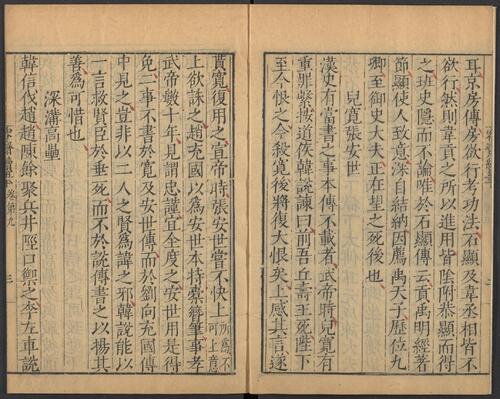 耳京房傳房欲行考功法石顯及韋丞相皆不
欲行然則韋貢之所以進用皆陰附恭顯而得
之班史隱而不論唯於石顯傳云貢禹明經著
節顯使人致意深自結納因薦禹天子歷位九
卿至御史大夫正在望之死後也
兒寬張安世
漢史有當書之事本傳不載者武帝時兒寬有
重罪繫按道侯韓說諫曰前吾丘壽王死陛下
至今恨之今殺寬後將復大恨矣上感其言遂
貰寬復用之宣帝時張安世嘗不快上所爲不可上意
上欲誅之趙充國以爲安世本持橐簪筆事孝
武帝數十年見謂忠謹宜全度之安世用是得
免二事不書於寬及安世傳而於劉向充國傳
中見之豈非以二人之賢爲諱之邪韓說能以
一言救賢臣於垂死而不於說傳書之以揚其
善爲可惜也
深溝高壘
韓信伐趙趙陳餘聚兵井陘口禦之李左車說
卷第九
三